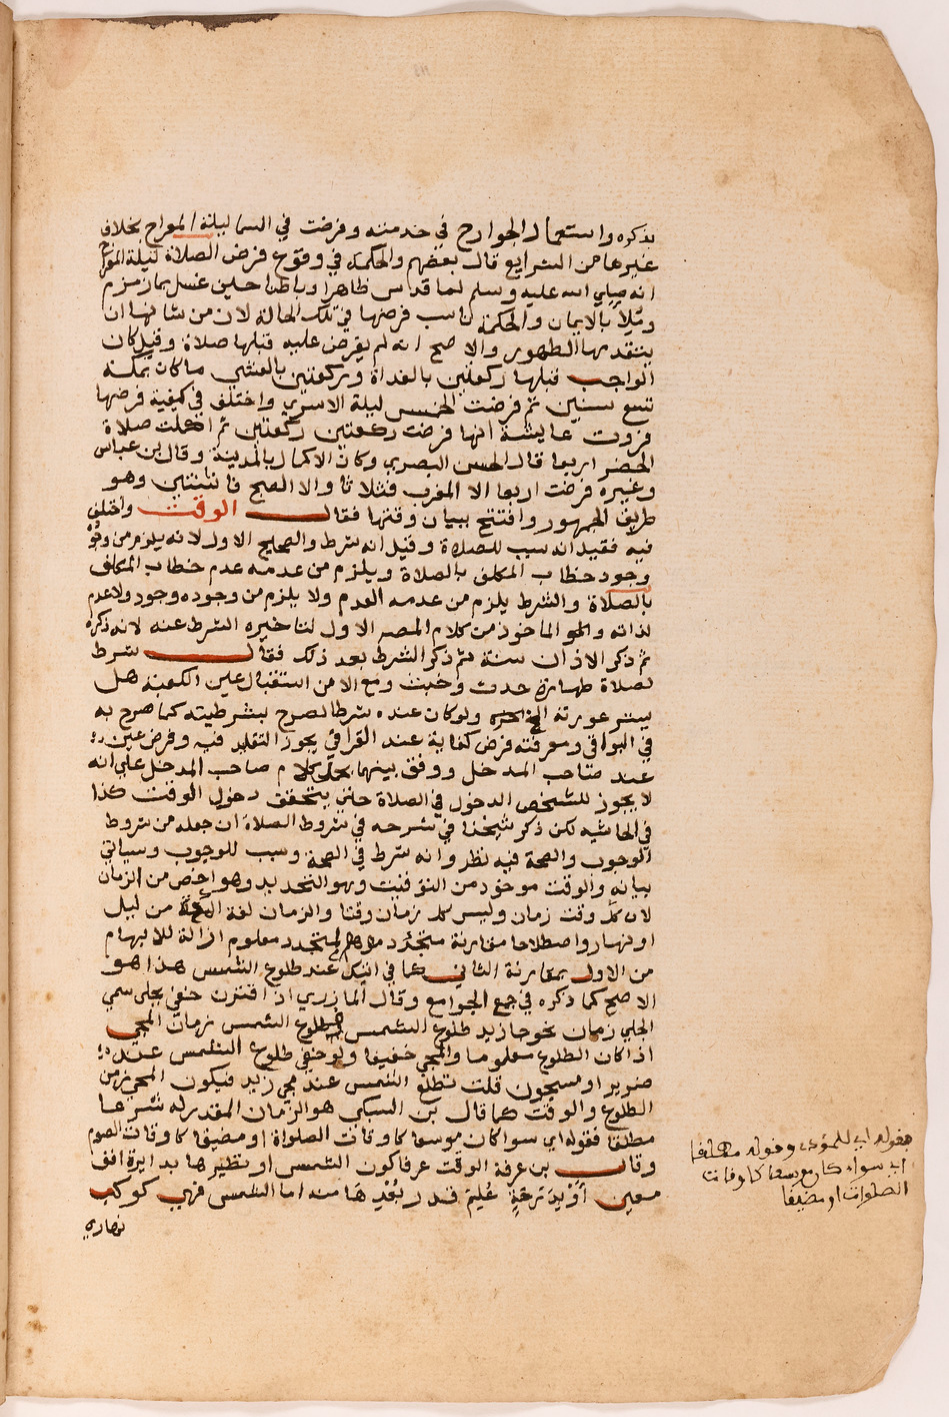 بذكره واستعمال الجوارح في خدمته وفرضت في السما ليلة المعراج بخلاف
غيرها من الشرايع قال بعضهم والحكمة في وقوع فرض الصلاة ليلة المعراج
انه صلي الله عليه وسلم لما قدس ظاهرا وباطنا حين غسل بما زمزم
وملأ بالايمان والحكمة ناسب فرضها في تلك الحالة لان من شانها ان
يتقدمها الطهور والاصح انه لم يفرض عليه قبلها صلاة وقيل كان
الواجب قبلها ركعتين بالغداة وركعتين بالعشي ما كان بمكة
تسع سنين ثم فرضت الخمس ليلة الاسري واختلف في كيفية فرضها
فروت عايشة انها فرضت ركعتين ركعتين ثم اكملت صلاة
الحضر اربعا قال الحسن البصري وكان الاكمال بالمدينة وقال بن عباس
وغيره فرضت اربعا الا المغرب فثلاثا والا الصبح فاثنتين وهو
طريق الجمهور وافتتح ببيان وقتها فقال الوقت واختلف
فيه فقيل انه سبب للصلاة وقيل انه شرط والصحيح الاول لانه يلزم من وقوع
وجود خطاب المكلف بالصلاة ويلزم من عدمه عدم خطاب المكلف
بالصلاة والشرط يلزم من عدمه العدم ولا يلزم من وجوده وجود ولا عدم
لذاته وهو الماخوذ من كلام المصه الاول لتاخيره الشرط عنه لانه ذكره
ثم ذكر الاذان سنة ثم ذكر الشرط بعد ذلك فقال شرط
لصلاة طهارة حدث وخبث ومع الامن استقبال عين الكعبة هل
ستر عورته الخ ولو كان عنده شرطا لصرح بشرطيته كما صرح به
في البواقي ومعرفته فرض كفاية عند القرافي يجوز التقليد فيه وفرض عين
عند صاحب المدخل ووفق بينهما بحمل كلام صاحب المدخل علي انه
لا يجوز للشخص الدخول في الصلاة حتي يتحقق دخول الوقت كذا
في الحاشيه لكن ذكر شيخنا في شرحه في شروط الصلاة ان جعله من شروط
الوجوب والصحة فيه نظر وانه شرط في الصحة وسبب للوجوب وسياتي
بيانه والوقت موخوذ من التوقيت وهو التحديد وهو اخص من الزمان
لان كل وقت زمان وليس كل زمان وقتا والزمان لغة المدة من ليل
او نهار واصطلاحا مقارنة متجدد موهوم لمتجدد معلوم ازالة للابهام
من الاول بمقارنة الثاني كما في اتيك عند طلوع الشمس هذا هو
الاصح كما ذكره في جمع الجوامع وقال المازري اذا اقترن خفي بجلي سمي
الجلي زمان نحو جا زيد طلوع الشمس فطلوع الشمس زمان المجي
اذا كان الطلوع معلوما والمجي خفيفا ولو خفي طلوع الشمس عند
ضرير او مسجون قلت تطلع الشمس عند مجي زيد فيكون المجي زمن
الطلوع والوقت كما قال بن السبكي هو الزمان المقدر له شرعا
مطلقا فقوله اي سوا كان موسعا كاوقات الصلواة او مضيقا كاوقات الصوم
وقال بن عرفة الوقت عرفا كون الشمس او نظيرها بدايرة افق
معين أو بدرجةٍ عُلِمَ قدر بُعْدِها منه اما الشمس فهي كوكب
نهاري
فقوله اي للمؤدى وقوله مطلقا
اى سواء كان موسعا كاوقات
الصلوات او مضيقا